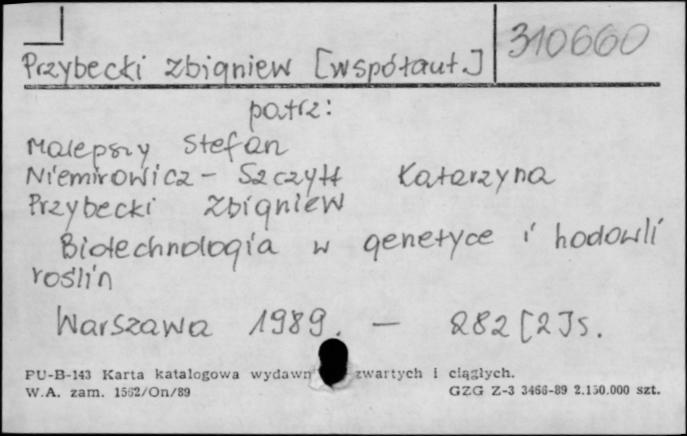 Przybecki Zbigniew [współaut.] 310660
patrz:
Malepszy Stefan
Niemirowicz - Szczytt Katarzyna
Przybecki Zbigniew
Biotechnologia w genetyce i hodowli
roślin
Warszawa 1989. — 282 [2] s.
PU-B-143 Karta katalogowa wydawn zwartych i ciągłych.
W.A. zam. 1562/On/89 GZG Z-3 3466-89 2.150.000 szt.